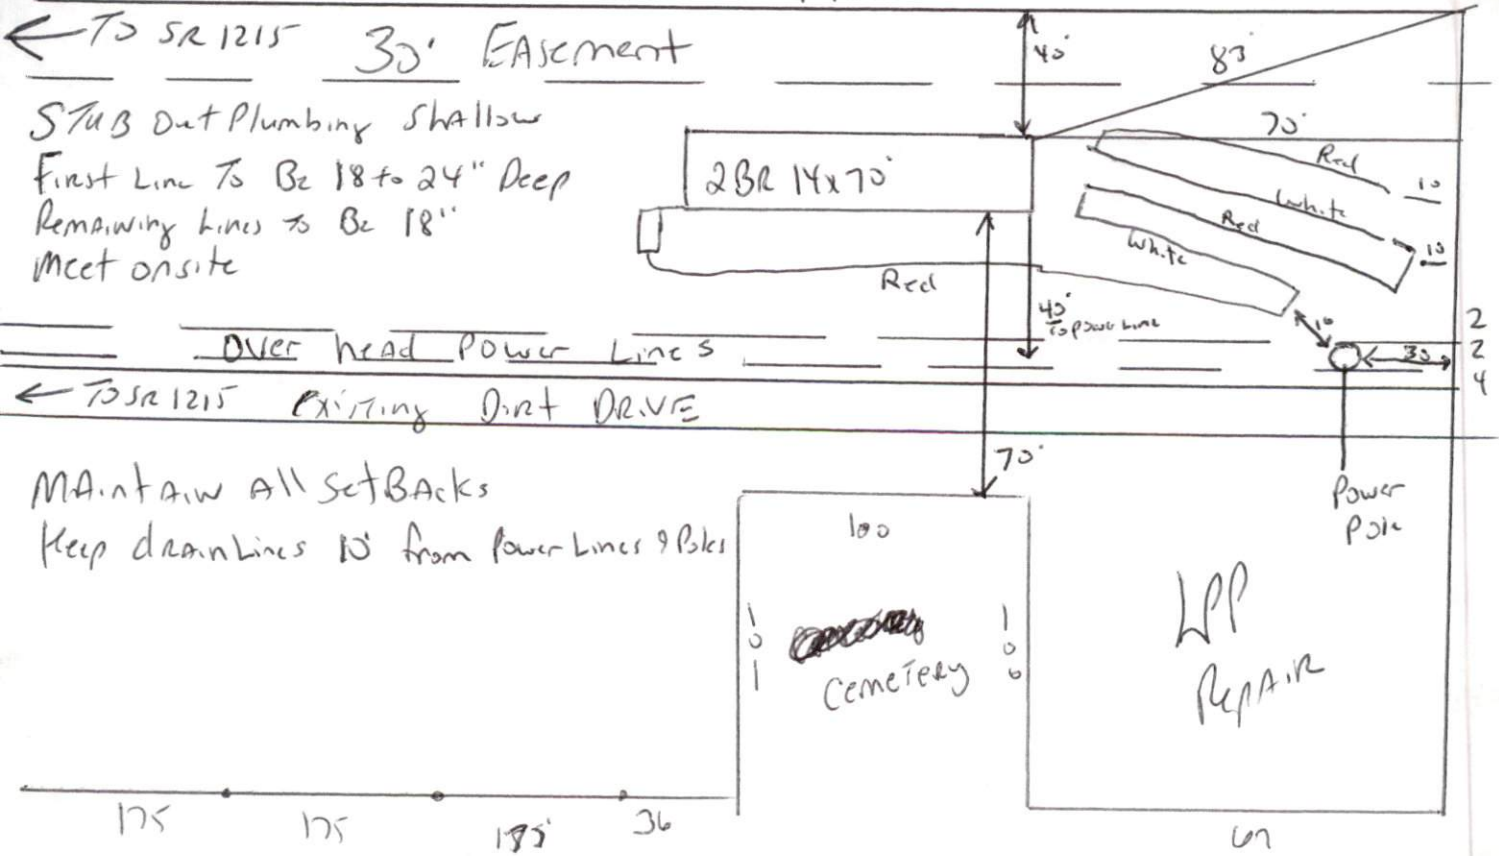 ← To SR 1215 30' Easement
40'
83'
STUB Out Plumbing Shallow
First Line To Be 18 to 24" Deep
Remaining Lines to Be 18"
Meet onsite
2BR 14x70'
70'
Red
White
Red
White
10
10
Red
40'
to power line
10
30
2
2
4
Over head Power Lines
← To SR 1215 Existing Dirt DRIVE
70'
Power
Pole
Maintain All SetBacks
Keep drainLines 10' from Power Lines & Poles
100
101
100
Cemetery
LPP
Repair
175
175
36
67